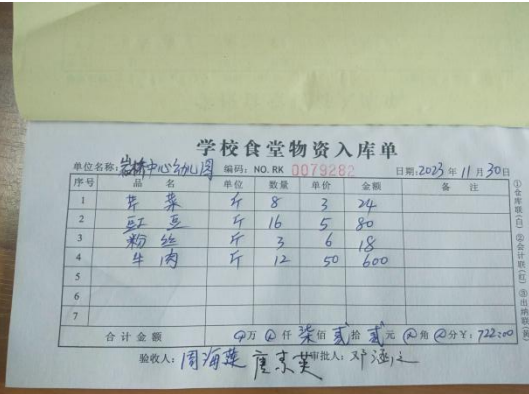 学校食堂物资入库单
单位名称:岩桥中心幼儿园 编码:NO.RK 0079282 日期:2023年11月30日
序号 品名 单位 数量 单价 金额 备注
1 芹菜 斤 8 3 24
2 豇豆 斤 16 5 80
3 粉丝 斤 3 6 18
4 牛肉 斤 12 50 600
5
6
7
合计金额 万 仟 柒佰 贰拾 贰元 角 分 ¥:722.00
验收人:周海燕 唐素英 审批人:邓
①仓库联(白) ②会计联(红) ③出纳联(黄)